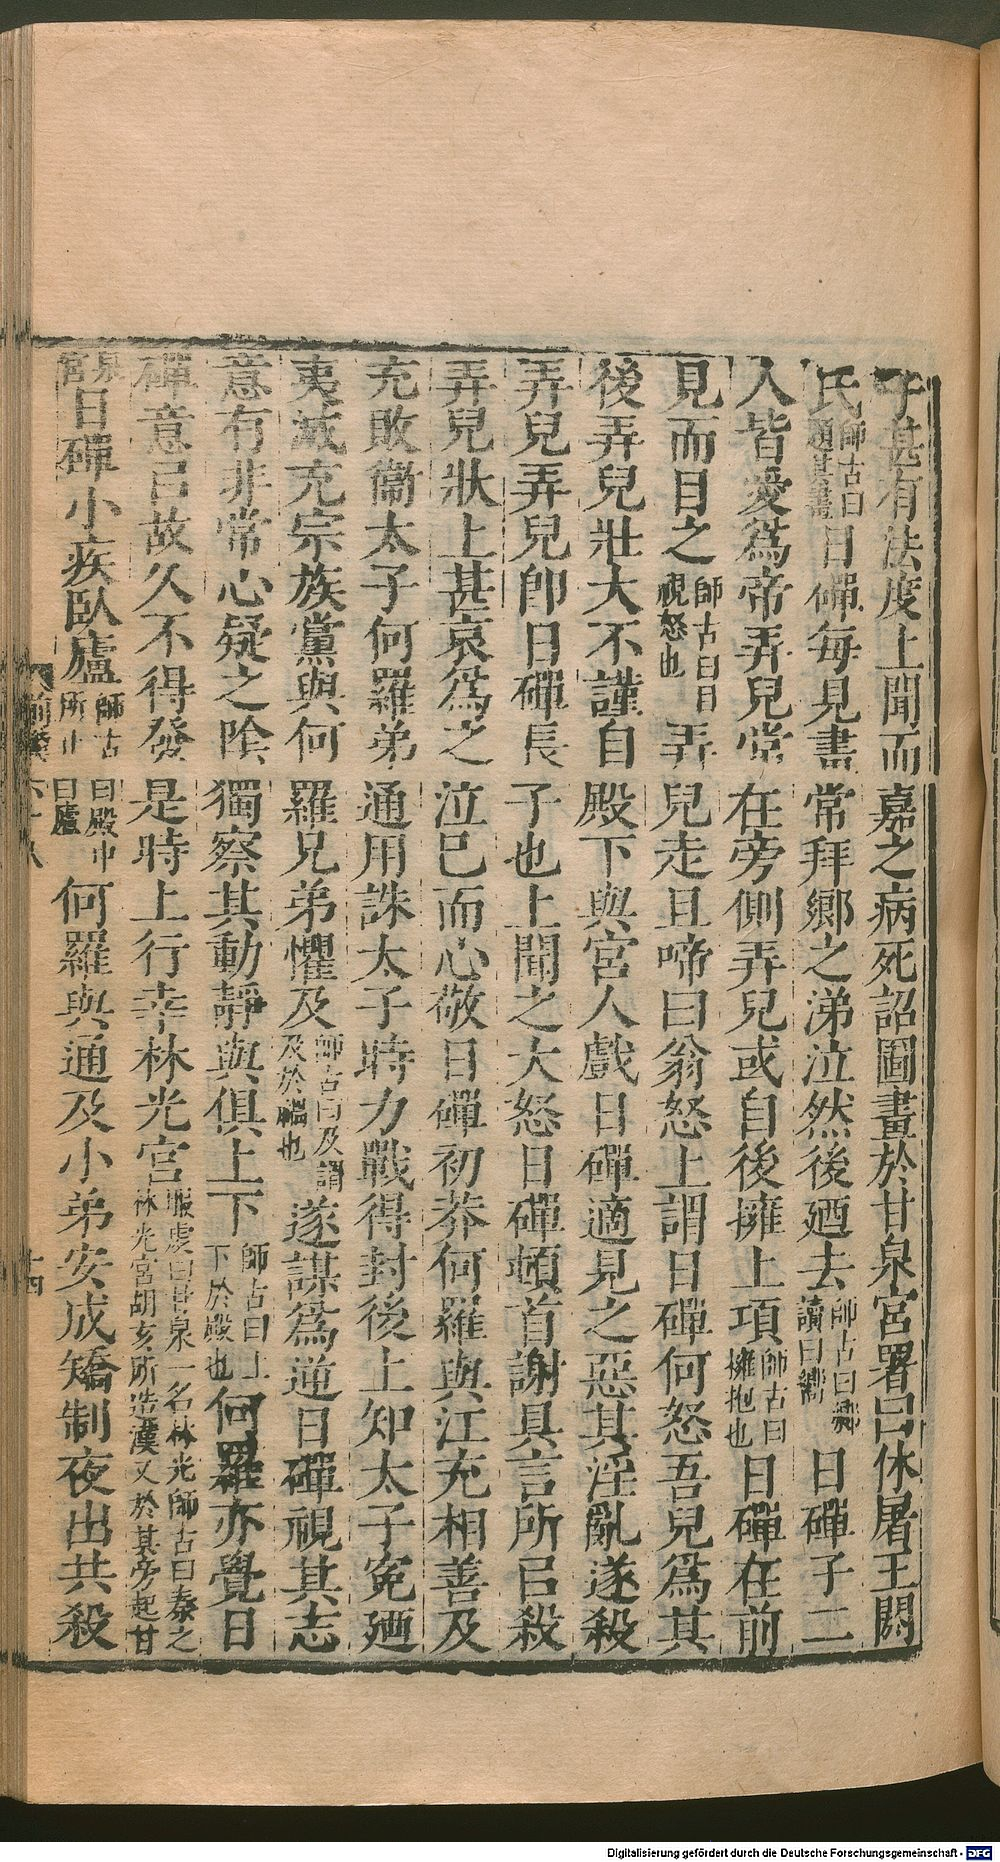 子甚有法度上聞而嘉之病死詔圖畫於甘泉宮署曰休屠王閼
氏師古曰題其畫日磾每見畫常拜鄉之涕泣然後廼去師古曰鄉讀曰嚮日磾子二
人皆愛爲帝弄兒常在旁側弄兒或自後擁上項師古曰擁抱也日磾在前
見而目之師古曰目視怒也弄兒走且啼曰翁怒上謂日磾何怒吾兒爲其
後弄兒壯大不謹自殿下與宮人戲日磾適見之惡其淫亂遂殺
弄兒弄兒卽日磾長子也上聞之大怒日磾頓首謝具言所㠯殺
弄兒狀上甚哀爲之泣已而心敬日磾初莽何羅與江充相善及
充敗衞太子何羅弟通用誅太子時力戰得封後上知太子冤廼
夷滅充宗族黨與何羅兄弟懼及師古曰及謂及於禍也遂謀爲逆日磾視其志
意有非常心疑之陰獨察其動靜與俱上下師古曰上下於殿也何羅亦覺日
磾意㠯故久不得發是時上行幸林光宮服虔曰甘泉一名林光師古曰秦之林光宮胡亥所造漢又於其旁起甘
泉宮日磾小疾臥廬師古曰殿中所止曰廬何羅與通及小弟安成矯制夜出共殺
前漢 六十八 十四
Digitalisierung gefördert durch die Deutsche Forschungsgemeinschaft - DFG